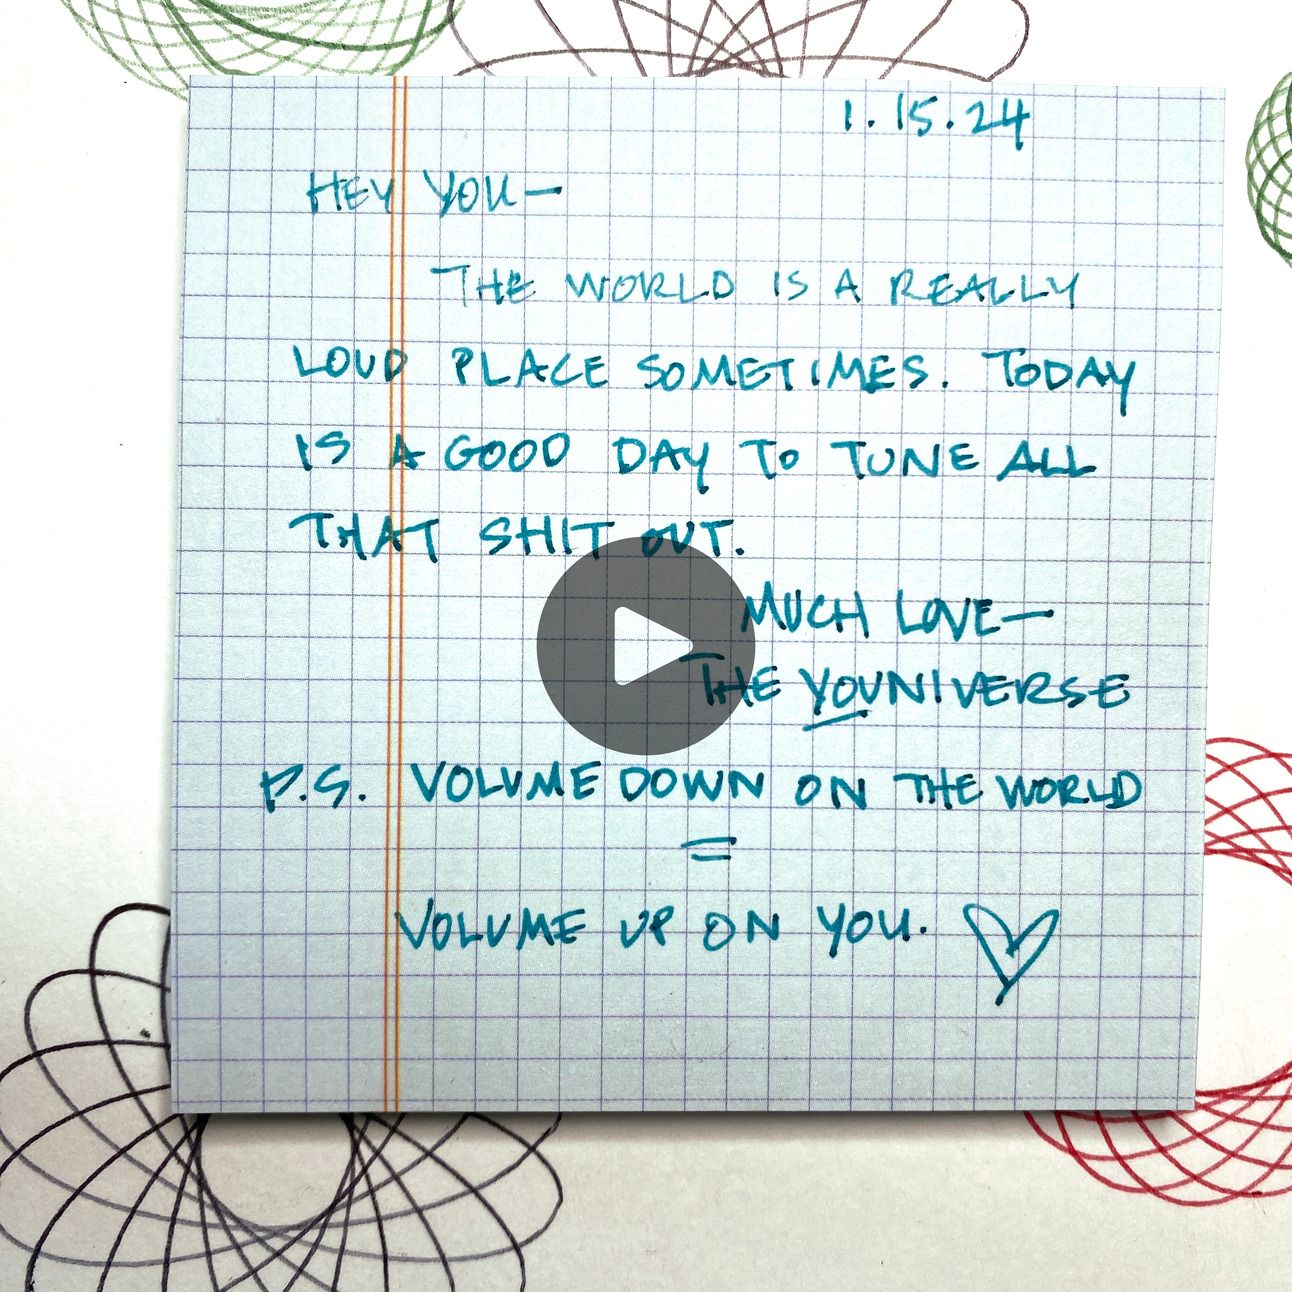 1.15.24
HEY YOU—
THE WORLD IS A REALLY
LOUD PLACE SOMETIMES. TODAY
IS A GOOD DAY TO TUNE ALL
THAT SHIT OUT.
MUCH LOVE—
THE YOUNIVERSE
P.S. VOLUME DOWN ON THE WORLD
=
VOLUME UP ON YOU.